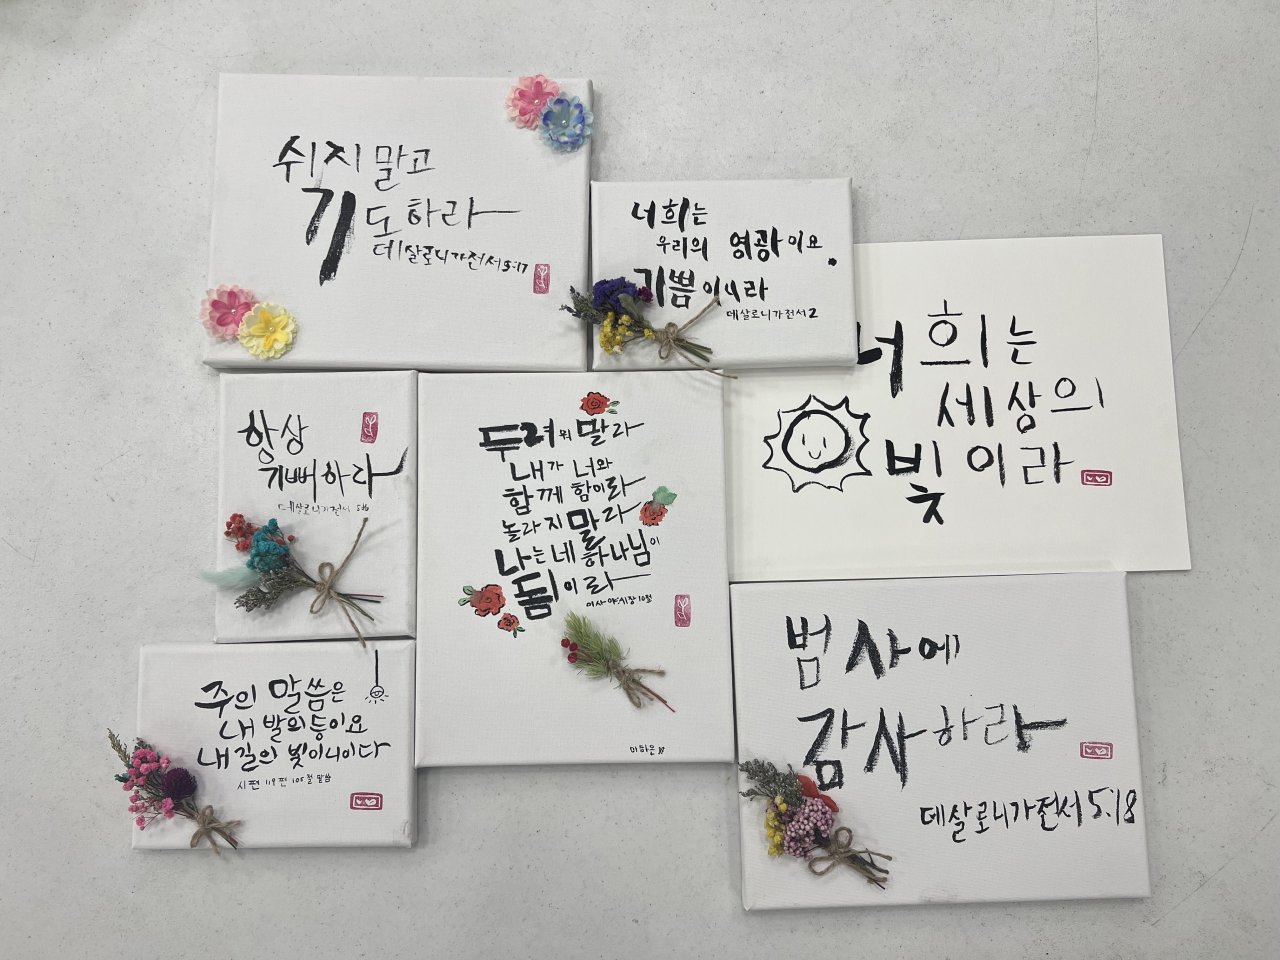 쉬지 말고
기도하라
데살로니가전서 5:17
너희는
우리의 영광이요.
기쁨이니라
데살로니가전서 2
너희는
세상의
빛이라
항상
기뻐하라
데살로니가전서 5:16
두려워 말라
내가 너와
함께 함이라
놀라지 말라
나는 네 하나님이
됨이라
이사야 41장 10절
이하은
주의 말씀은
내 발의 등이요
내 길의 빛이니이다
시편 119편 105절 말씀
범사에
감사하라
데살로니가전서 5:18